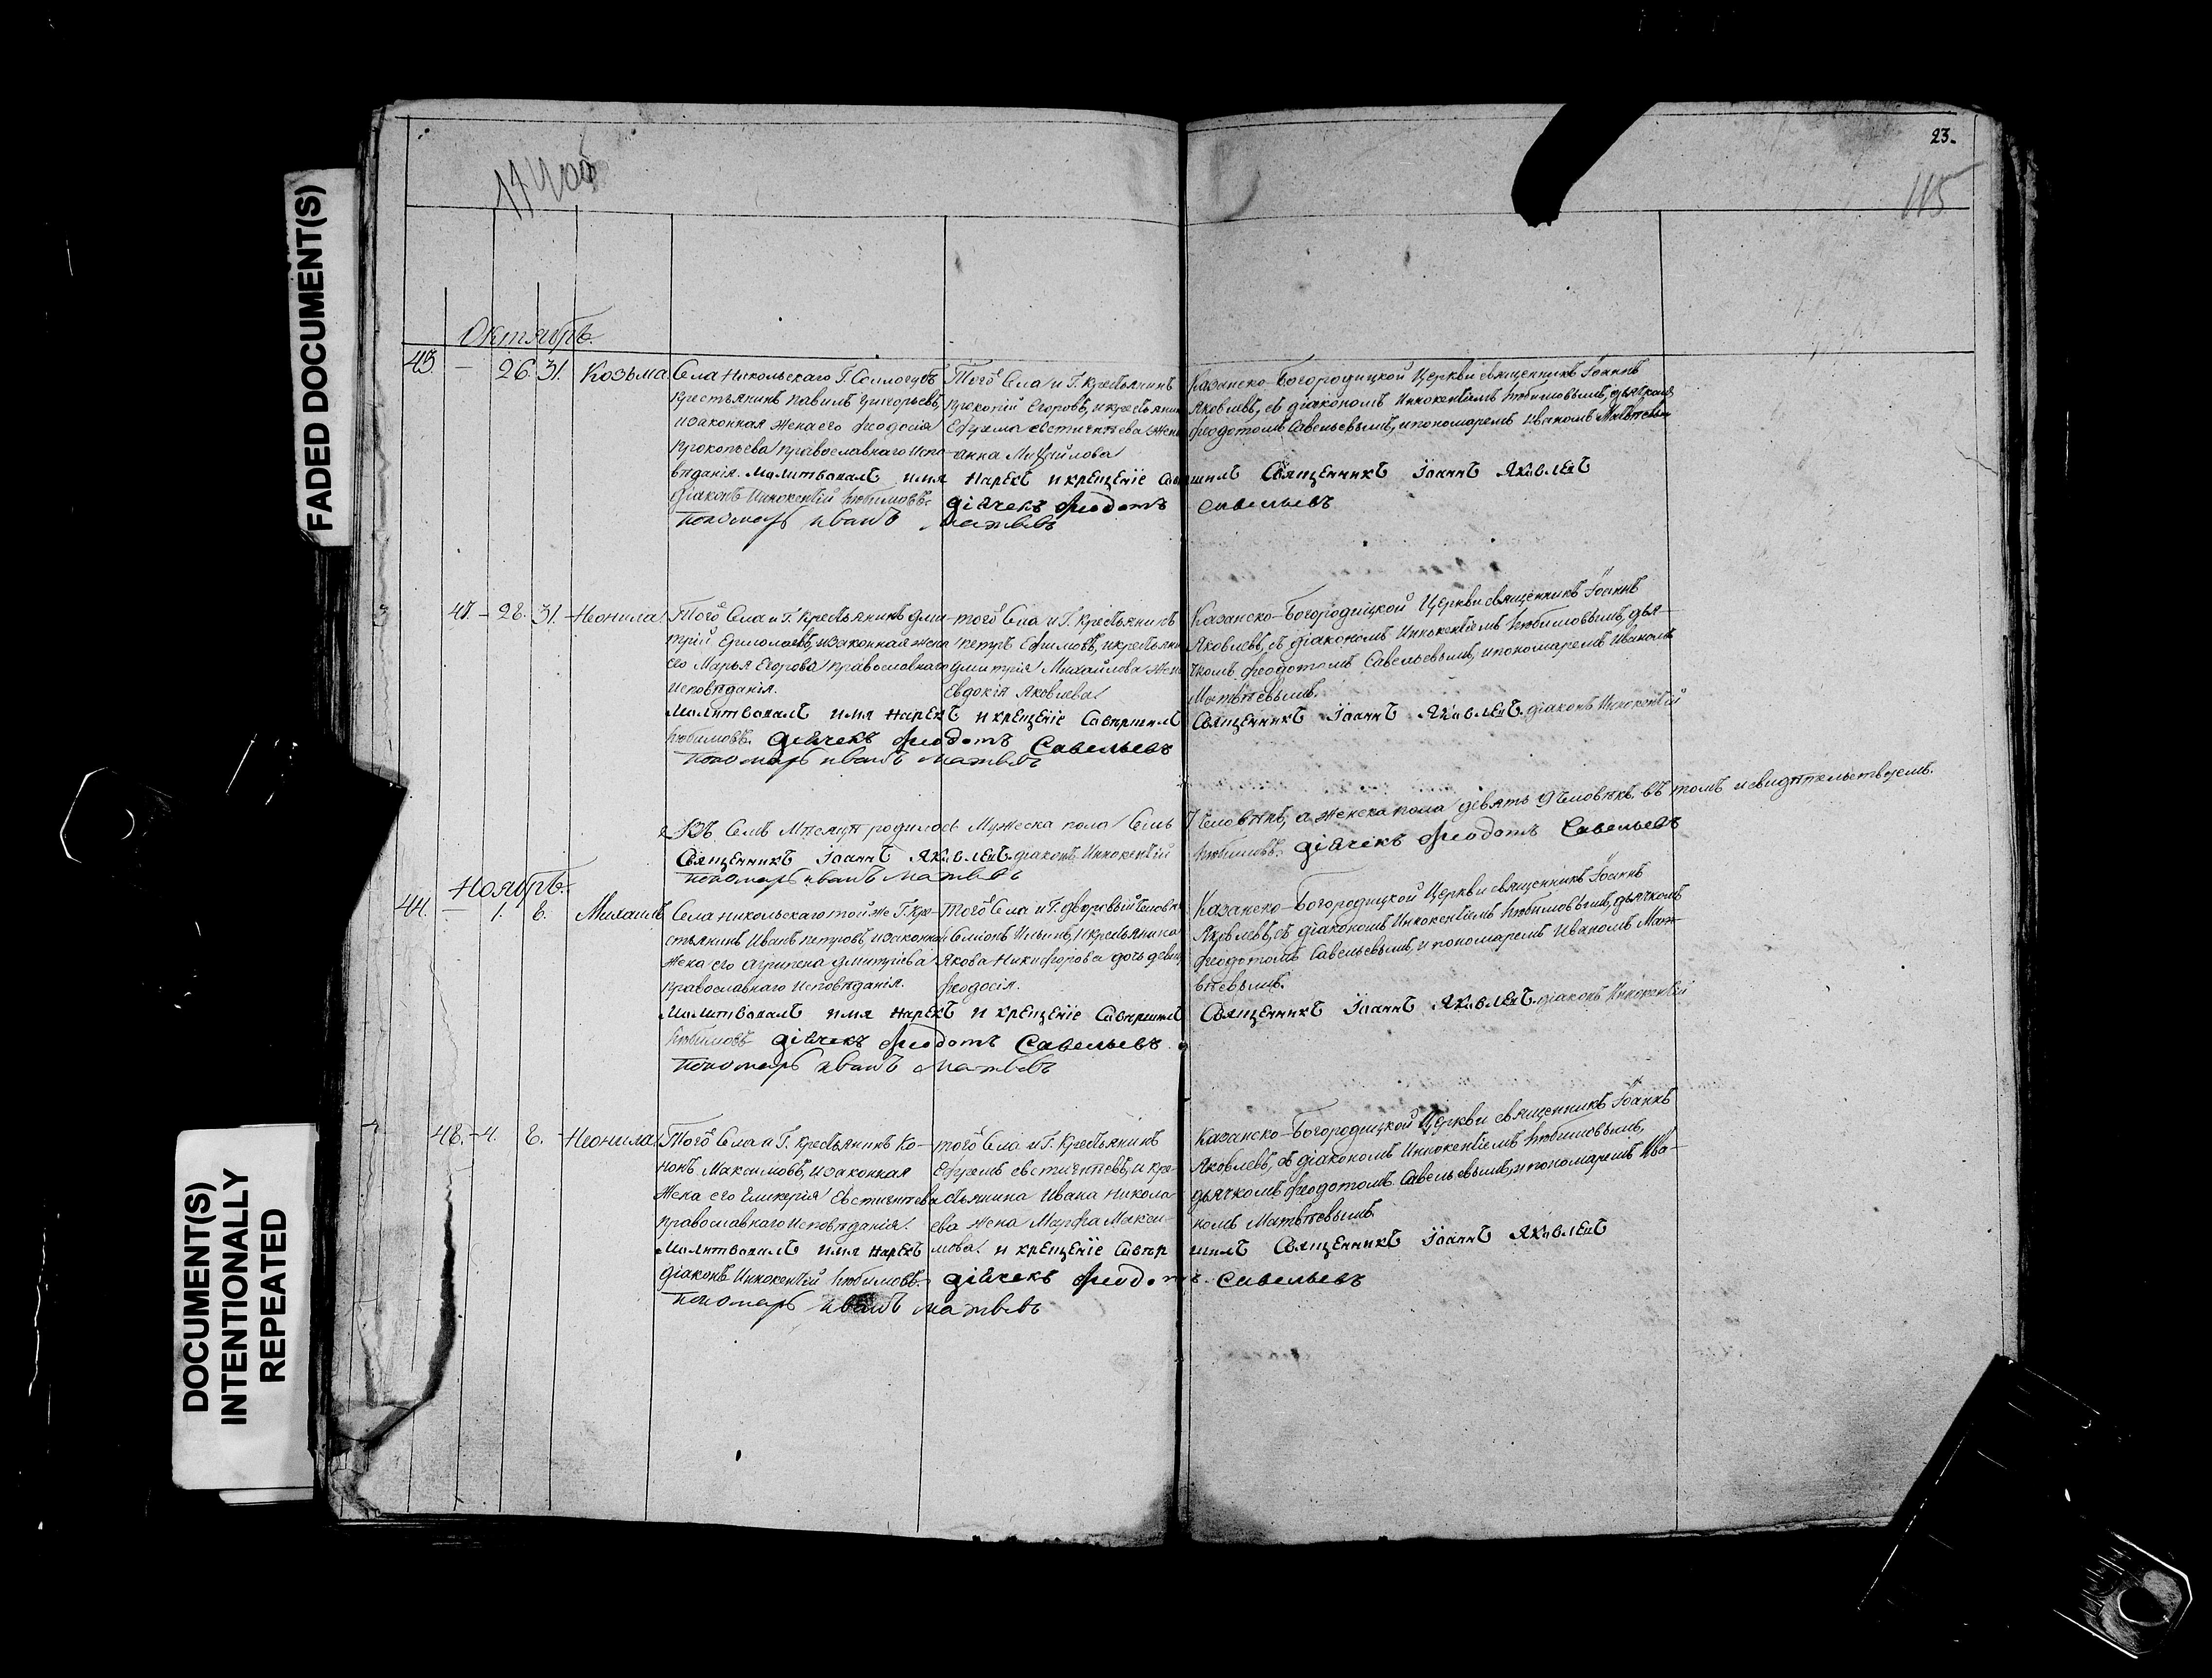 FADED DOCUMENT(S)
DOCUMENT(S)
INTENTIONALLY
REPEATED
23.
115
Октябрь.
43 – 26. 31. Козьма.
Села Никольскаго Г. Соллогубъ
крестьянинъ Павилъ Григорьевъ,
и законная жена его Феодосія
Прокопьева православнаго испо-
вѣданія.
Того Села и Г. Крестьянинъ
Прокопій Егоровъ, и крестьянина
Ефрема Евстигнѣева жена
Анна Михайлова
Казанско-Богородицкой Церкви священникъ Іоаннъ
Яковлевъ, съ діакономъ Иннокентіемъ Любимовымъ, дьячкомъ
Феодотомъ Савельевымъ, и пономаремъ Иваномъ Матвѣевымъ
Молитвовалъ имя нарекъ и крещеніе совершилъ Священникъ Іоаннъ Яковлевъ
Діаконъ Иннокентій Любимовъ. Дiячекъ Феодотъ Савельевъ
Пономарь Иванъ Матвевъ
47. – 28. 31. Неонила.
Того Села и Г. Крестьянинъ Дми-
трій Ермолаевъ, и законная жена
его Марья Егорова православнаго
исповѣданія.
того Села и Г. Крестьянинъ
Петръ Ефимовъ, и крестьянина
Дмитрія Михайлова жена
Евдокія Яковлева
Казанско-Богородицкой Церкви священникъ Іоаннъ
Яковлевъ, съ діакономъ Иннокентіемъ Любимовымъ, дья-
чкомъ Феодотомъ Савельевымъ, и пономаремъ Иваномъ
Матвѣевымъ.
Молитвовалъ имя нарекъ и крещеніе совершилъ Священникъ Іоаннъ Яковлевъ. діаконъ Иннокентій
Любимовъ. Дiячекъ Феодотъ Савельевъ
Пономарь Иванъ Матвевъ
Въ Семъ Мѣсяцѣ родилось Мужеска пола Семь 7 Человѣкъ, а Женска пола девять 9 Человѣкъ. Въ томъ и свидѣтельствуемъ.
Священникъ Іоаннъ Яковлевъ. діаконъ Иннокентій Любимовъ. Дiячекъ Феодотъ Савельевъ
Пономарь Иванъ Матвевъ
Ноябрь.
44. – 1. 8. Михаилъ
Села Никольскаго той же Г. Кре-
стьянинъ Иванъ Петровъ, и законная
жена его Агрипена Дмитріева
православнаго исповѣданія.
Того Села и Г. дворовый человѣкъ
Симіонъ Ильинъ, и крестьянина
Якова Никифорова дочь девица
Феодосія.
Казанско-Богородицкой Церкви священникъ Іоаннъ
Яковлевъ, съ діакономъ Иннокентіемъ Любимовымъ, дьячкомъ
Феодотомъ Савельевымъ, и пономаремъ Иваномъ Мат-
вѣевымъ.
Молитвовалъ имя нарекъ и крещеніе совершилъ Священникъ Іоаннъ Яковлевъ. діаконъ Иннокентій
Любимовъ Дiячекъ Феодотъ Савельевъ
Пономарь Иванъ Матвевъ
48. – 4. 8. Неонила.
Того Села и Г. Крестьянинъ Ко-
нонъ Максимовъ, и законная
жена его Гликерія Евстигнѣева
православнаго исповѣданія.
того Села и Г. Крестьянинъ
Ефремъ Евстигнѣевъ, и кре-
стьянина Ивана Никола-
ева жена Марфа Макси-
мова.
Казанско-Богородицкой Церкви священникъ Іоаннъ
Яковлевъ, съ діакономъ Иннокентіемъ Любимовымъ,
дьячкомъ Феодотомъ Савельевымъ, и пономаремъ Ива-
номъ Матвѣевымъ.
Молитвовалъ имя нарекъ и крещеніе совершилъ Священникъ Іоаннъ Яковлевъ
Діаконъ Иннокентій Любимовъ. Дiячекъ Феодотъ Савельевъ
Пономарь Иванъ Матвевъ